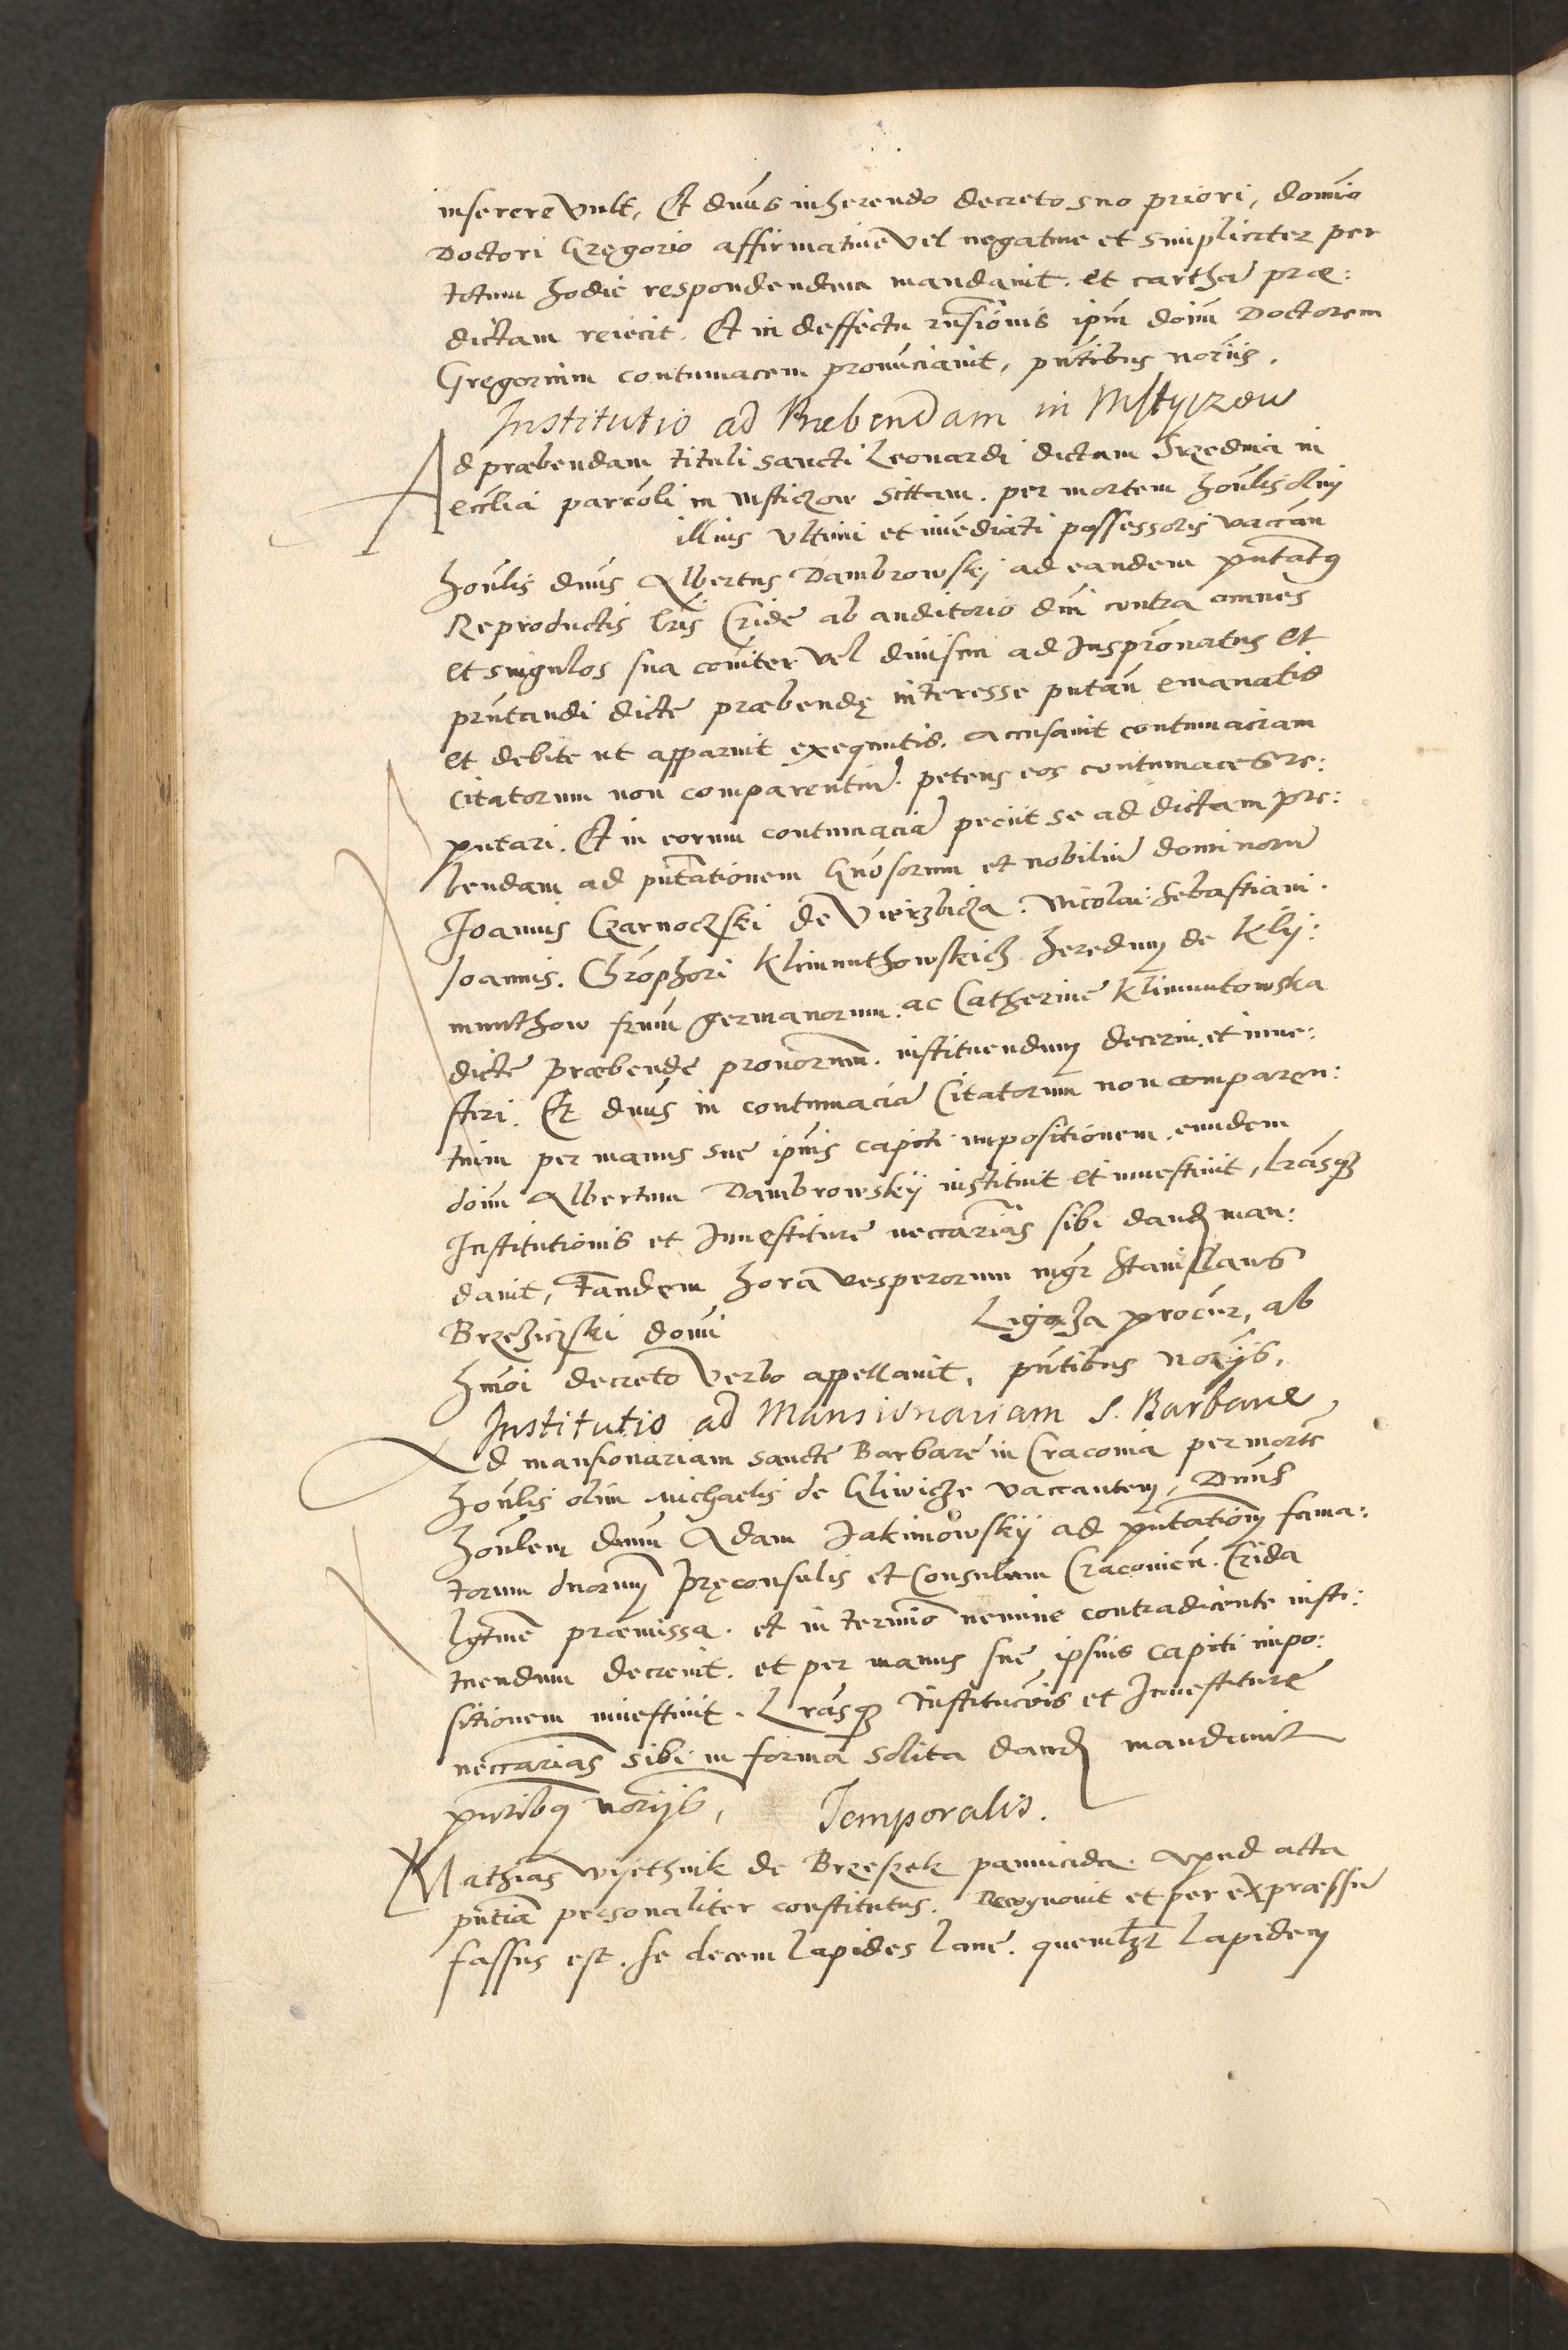 inserere vult, Et dnus inherendo decreto suo priori, domio
Doctori Gregorio affirmative vel negative et simpliciter per
totum hodie respondendum mandavit. et cartha præ:
dictam reiecit. Et in deffectu rnsionis ipm doim Doctorem
Gregorium contumacem pronuciavit, pntibus noriis.
Institutio ad Præbendam in Mstyczow
Ad præbendam tituli sancti Leonardi dictam Srzednia in
ecclia parroli in Msticzow sittam. per mortem honlis olim
illius ultimi et imediati possessoris vaccan
honlis dnus Albertus Dambrowskij ad eandem pntatq
Reproductis lris Cride ab auditorio dni contra omnes
et singulos sua coniter vel divisim ad Juspronatus et
prntandi dicte præbendę interesse putan emanatis
et debite ut apparuit exequutis. accusavit contumaciam
citatorum non comparentium. petens eos contumaces re:
putari. Et in eorum contumacia peciit se ad dictam pre:
bendam ad pntationem Gnosorum et nobiliu dominoru
Joannis Czarnoczski de Vierzbicza. Nicolai. Sebastiani.
Joannis. Chrophori Klimunthowskich heredum de Kly:
munthow frum germanorum. ac Catherine Klimuntowska
dicte præbende pronorum. instituendum decerni. et inve:
stiri. Et dnus in contumacia Citatorum non comparen:
tium per manus sue ipius capiti impositionem. eundem
doim Albertum Dambrowskij instituit et investivit, lrasq
Institutionis et Investiture neccarias sibi dand man:
davit, Tandem hora vesperorum mgr Stanislaus
Brzeziczski domi Ligęza procur, ab
hmoi decreto verbo appellavit, pntibus norijs.
Institutio ad Mansionariam S. Barbaræ
Ad mansionariam sancte Barbare in Cracovia per morte
honlis olim Michaelis de Gliwicze vaccantem, Dnus
honlem dnum Adam Jakimowskij ad pntationem fama:
torum dnorum Pręconsulis et Consulum Cracovien. Crida
lgtme præmissa. et in termio nemine contradicente insti:
tuendum decrevit. et per manus sue ipsius capiti impo:
sitionem investivit. Lrasq Institucois et Investiture
neccarias sibi in forma solita dand mandavit
pntibq norijs, Temporalis.
Mathias Wyethnik de Brzeszek pannicida. Apud acta
pntia personaliter constitutus. Recognovit et per expræssu
fassus est. se decem lapides lane. quemlzt lapidem